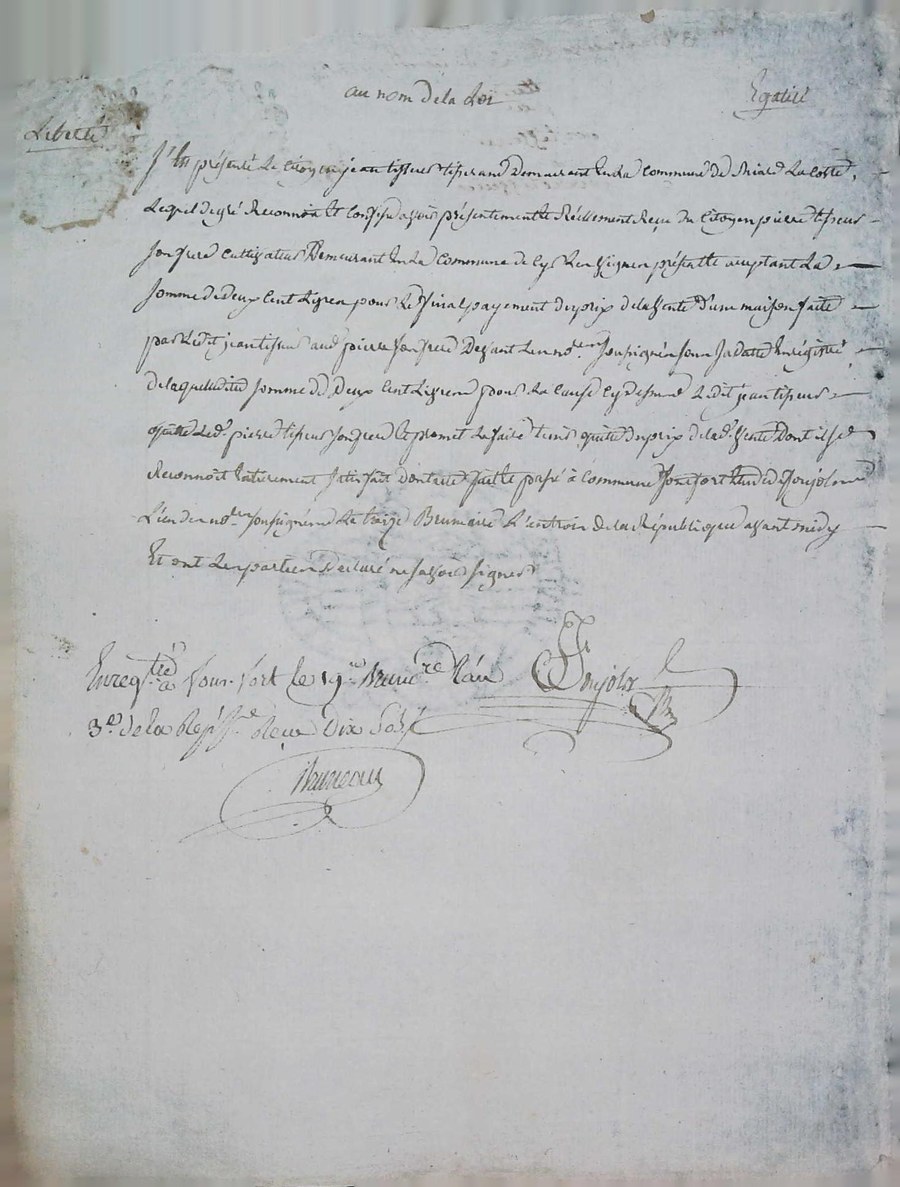 au nom de la Loi
Egalité
Liberté
fut présent Le Citoyen jean tisseur tisserand Demeurant En La Commune de La Coste,
Lequel de gré Reconnoit Et Confesse avoir présentement Et Réellement Reçu Du Citoyen pierre tisseur
son frere Cultivateur Demeurant En La Commune de présent Et acceptant La
somme de deux Cent Livres pour Le final payement du prix de la Vente D'une maison faite
par Ledit jean tisseur audt pierre son frere Devant Les nores soussignés sous sa datte Enregistré,
de laquelle ditte somme de Deux Cent Livres pour La Cause Cy dessus Ledit jean tisseur
quitte Led. pierre tisseur son frere Et promet Le faire tenir quitte du prix de lad. Vente Dont il se
Reconnoit Entierement satisfait dont acte fait Et passé à Commune
L'un des nores soussignés Le treize Brumaire L'an trois de la République avant midy
Et ont Les parties Déclaré ne savoir signer
Enregtré à le 19e Brumre L'an
3e de la Rep. fse Reçu Dix Sols